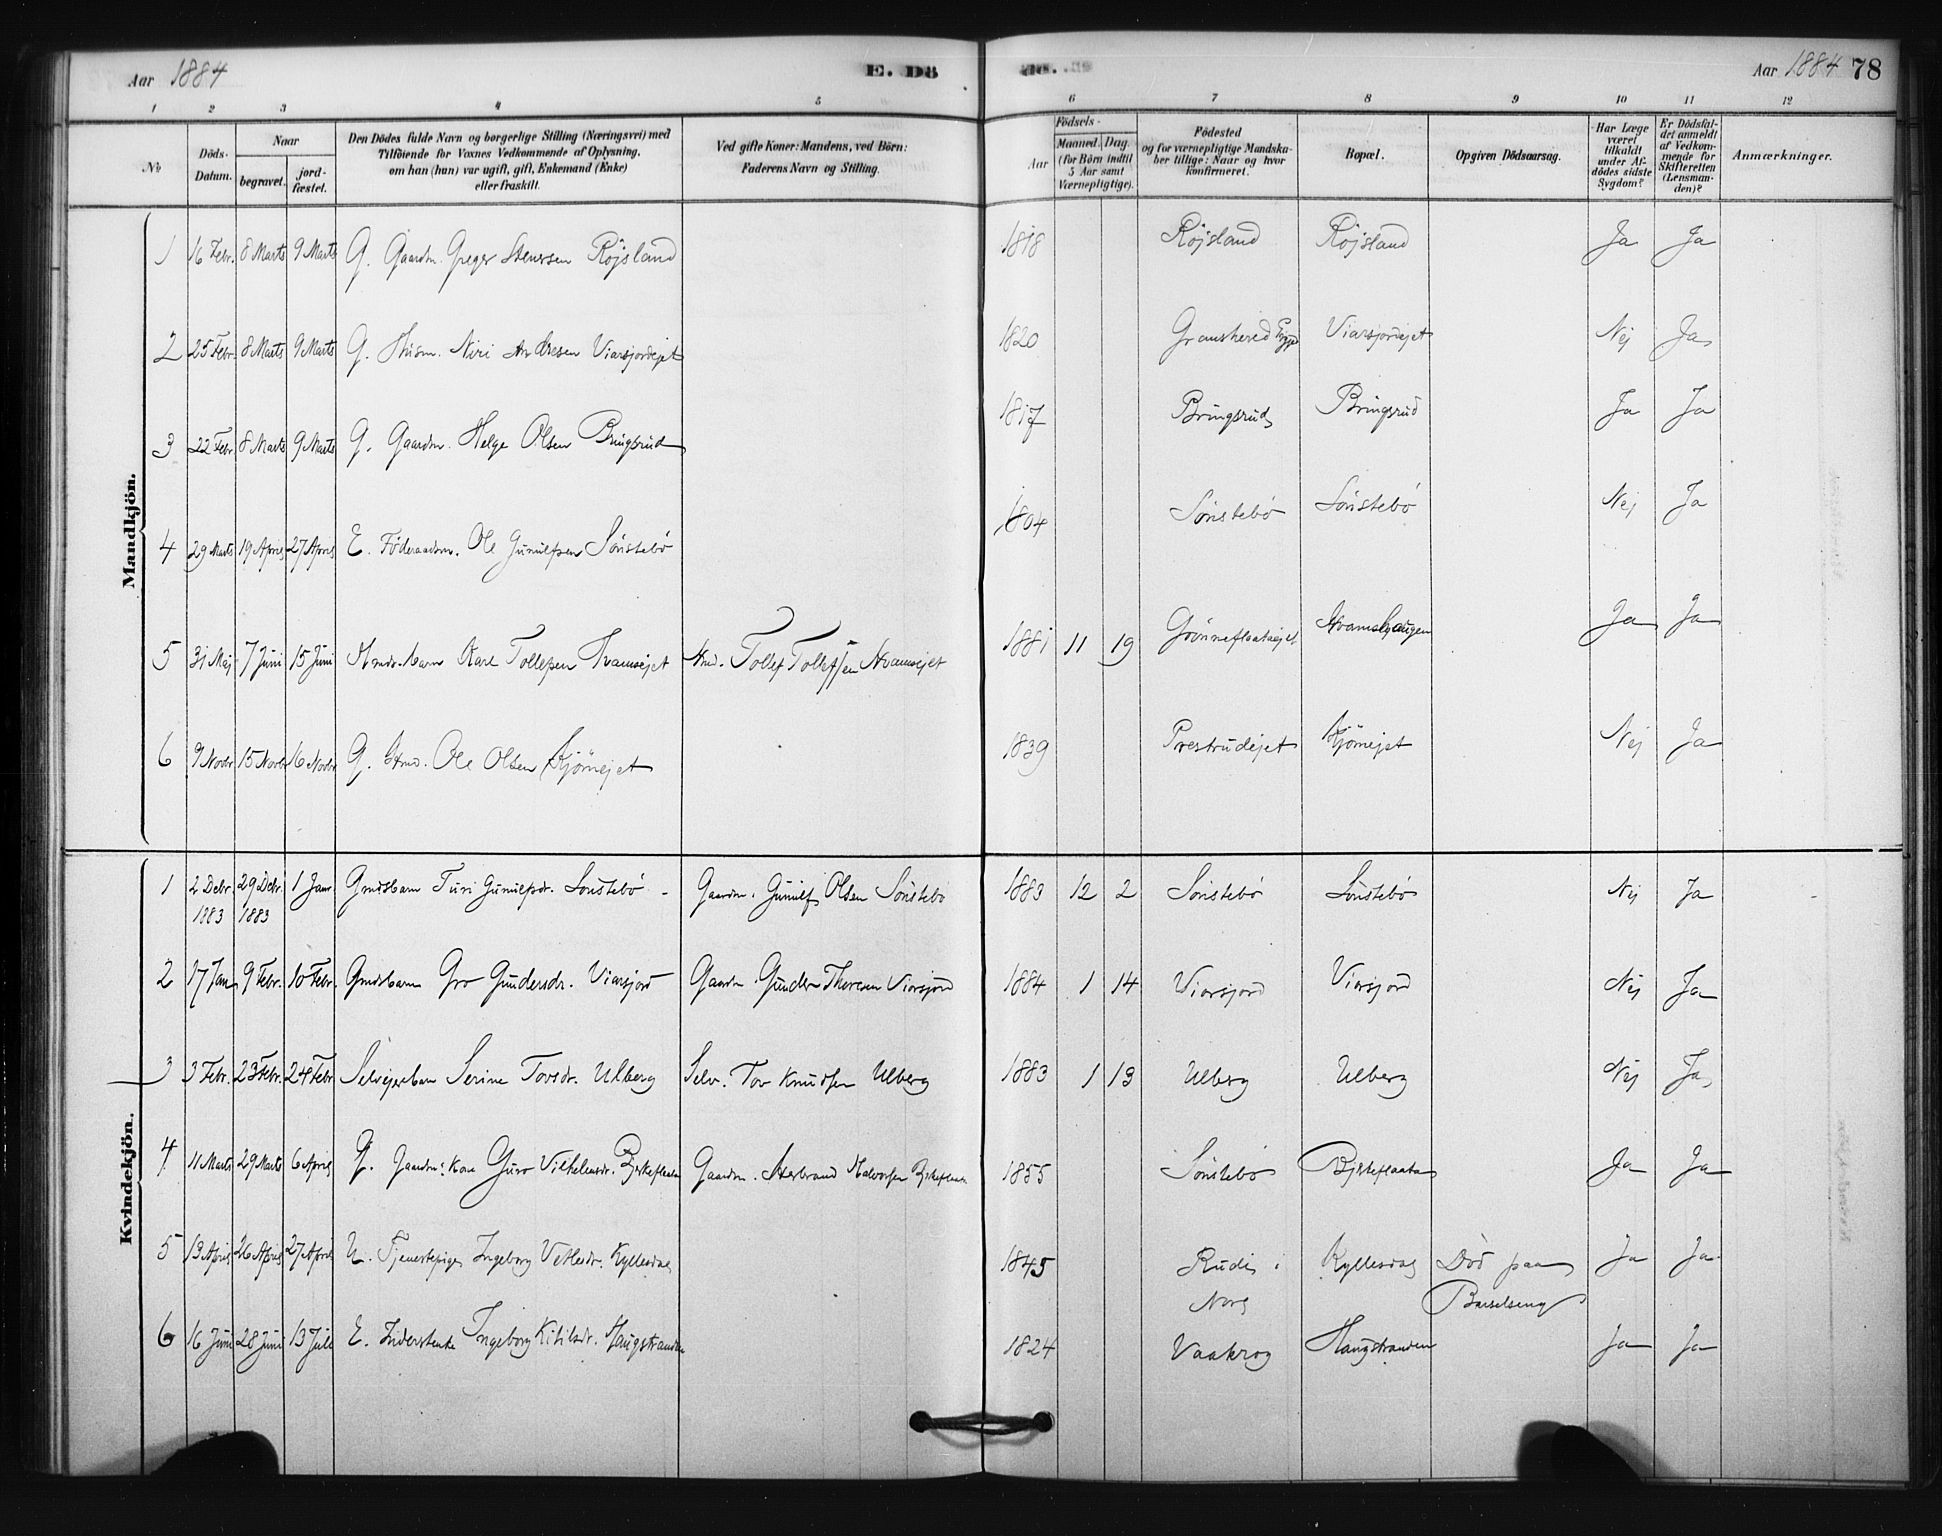 Aar 1884 E. Dö de. Aar 1884 78
1 2 3 4 5 6 7 8 9 10 11 12
No Döds-Datum. Naar begravet. jord-fæstet. Den Dödes fulde Navn og borgerlige Stilling (Næringsvei) med Tilföiende for Voxnes Vedkommende af Oplysning, om han (hun) var ugift, gift, Enkemand (Enke) eller fraskilt. Ved gifte Koner: Mandens, ved Börn: Faderens Navn og Stilling. Födsels- Aar Maaned. Dag. (for Börn indtil 5 Aar samt Værnepligtige). Födested og for værnepligtige Mandskaber tillige: Naar og hvor konfirmeret. Bopæl. Opgiven Dödsaarsag. Har Læge været tilkaldt under Afdödes sidste Sygdom? Er Dödsfaldet anmeldt af Vedkommende for Skifteretten (Lensmanden)? Anmærkninger.
Mandkjön.
1 16 Febr. 8 Marts 9 Marts G. Gaardm. Greger Stenersen Röjsland 1818 Röjsland Röjsland Ja Ja
2 25 Febr. 8 Marts 9 Marts G. Husm. Niri Andresen Viersjordejet 1820 Gransherred Viarsjordejet Nej Ja
3 22 Febr. 8 Marts 9 Marts G. Gaardm. Helge Olsen Bringsrud 1817 Bringsrud Bringsrud Ja Ja
4 29 Marts 19 April 27 April E. Föderaadsm. Ole Gunulfsen Sönstebö 1804 Sönstebö Sönstebö Nej Ja
5 31 Maj 7 Juni 15 Juni Hmds.barn Karl Tollefsen Hvamsejet Hmd. Tollef Tollefsen Hvamsejet 1881 11 19 Grönneflaataejet Hvamshaugen Ja Ja
6 9 Novbr 15 Novbr 16 Novbr G. Hmd. Ole Olsen Kjörnejet 1839 Prestrudejet Kjörnejet Nej Ja
Kvindekjön.
1 2 Debr. 1883 29 Debr. 1883 1 Janr Gmdsbarn Turi Gunulfsdr. Sönstebö - Gaardm. Gunulf Olsen Sönstebö 1883 12 2 Sönstebö Sönstebö Nej Ja
2 17 Jan 9 Febr. 10 Febr. Gmdsbarn Gro Gundersdr. Viarsjord Gaardm Gunder Thoresen Viersjord 1884 1 14 Viersjord Viersjord Nej Ja
3 3 Febr. 23 Febr. 24 Febr Selvejerbarn Serine Tovsdr. Ulberg Selv. Tov Knudsen Ulberg 1883 1 13 Ulberg Ulberg Nej Ja
4 11 Marts 29 Marts 6 April G. Gaardm: Kone Guro Vilhelmsdr. Bjerkeflaata Gaardm. Herbrand Halvorsen Bjerkeflaata 1855 Sönstebö Bjerkeflaata Ja Ja
5 13 April 26 April 27 April U. Tjenestepige Ingeborg Vetlesdr. Kyllesdal 1845 Rudi i Nore Kyllesdal Död paa Barselseng Ja Ja
6 16 Juni 28 Juni 13 Juli E. Inderstenke Ingeborg Kitilsdr. Haugstranden 1824 Vaakrog Haugstranden Ja Ja